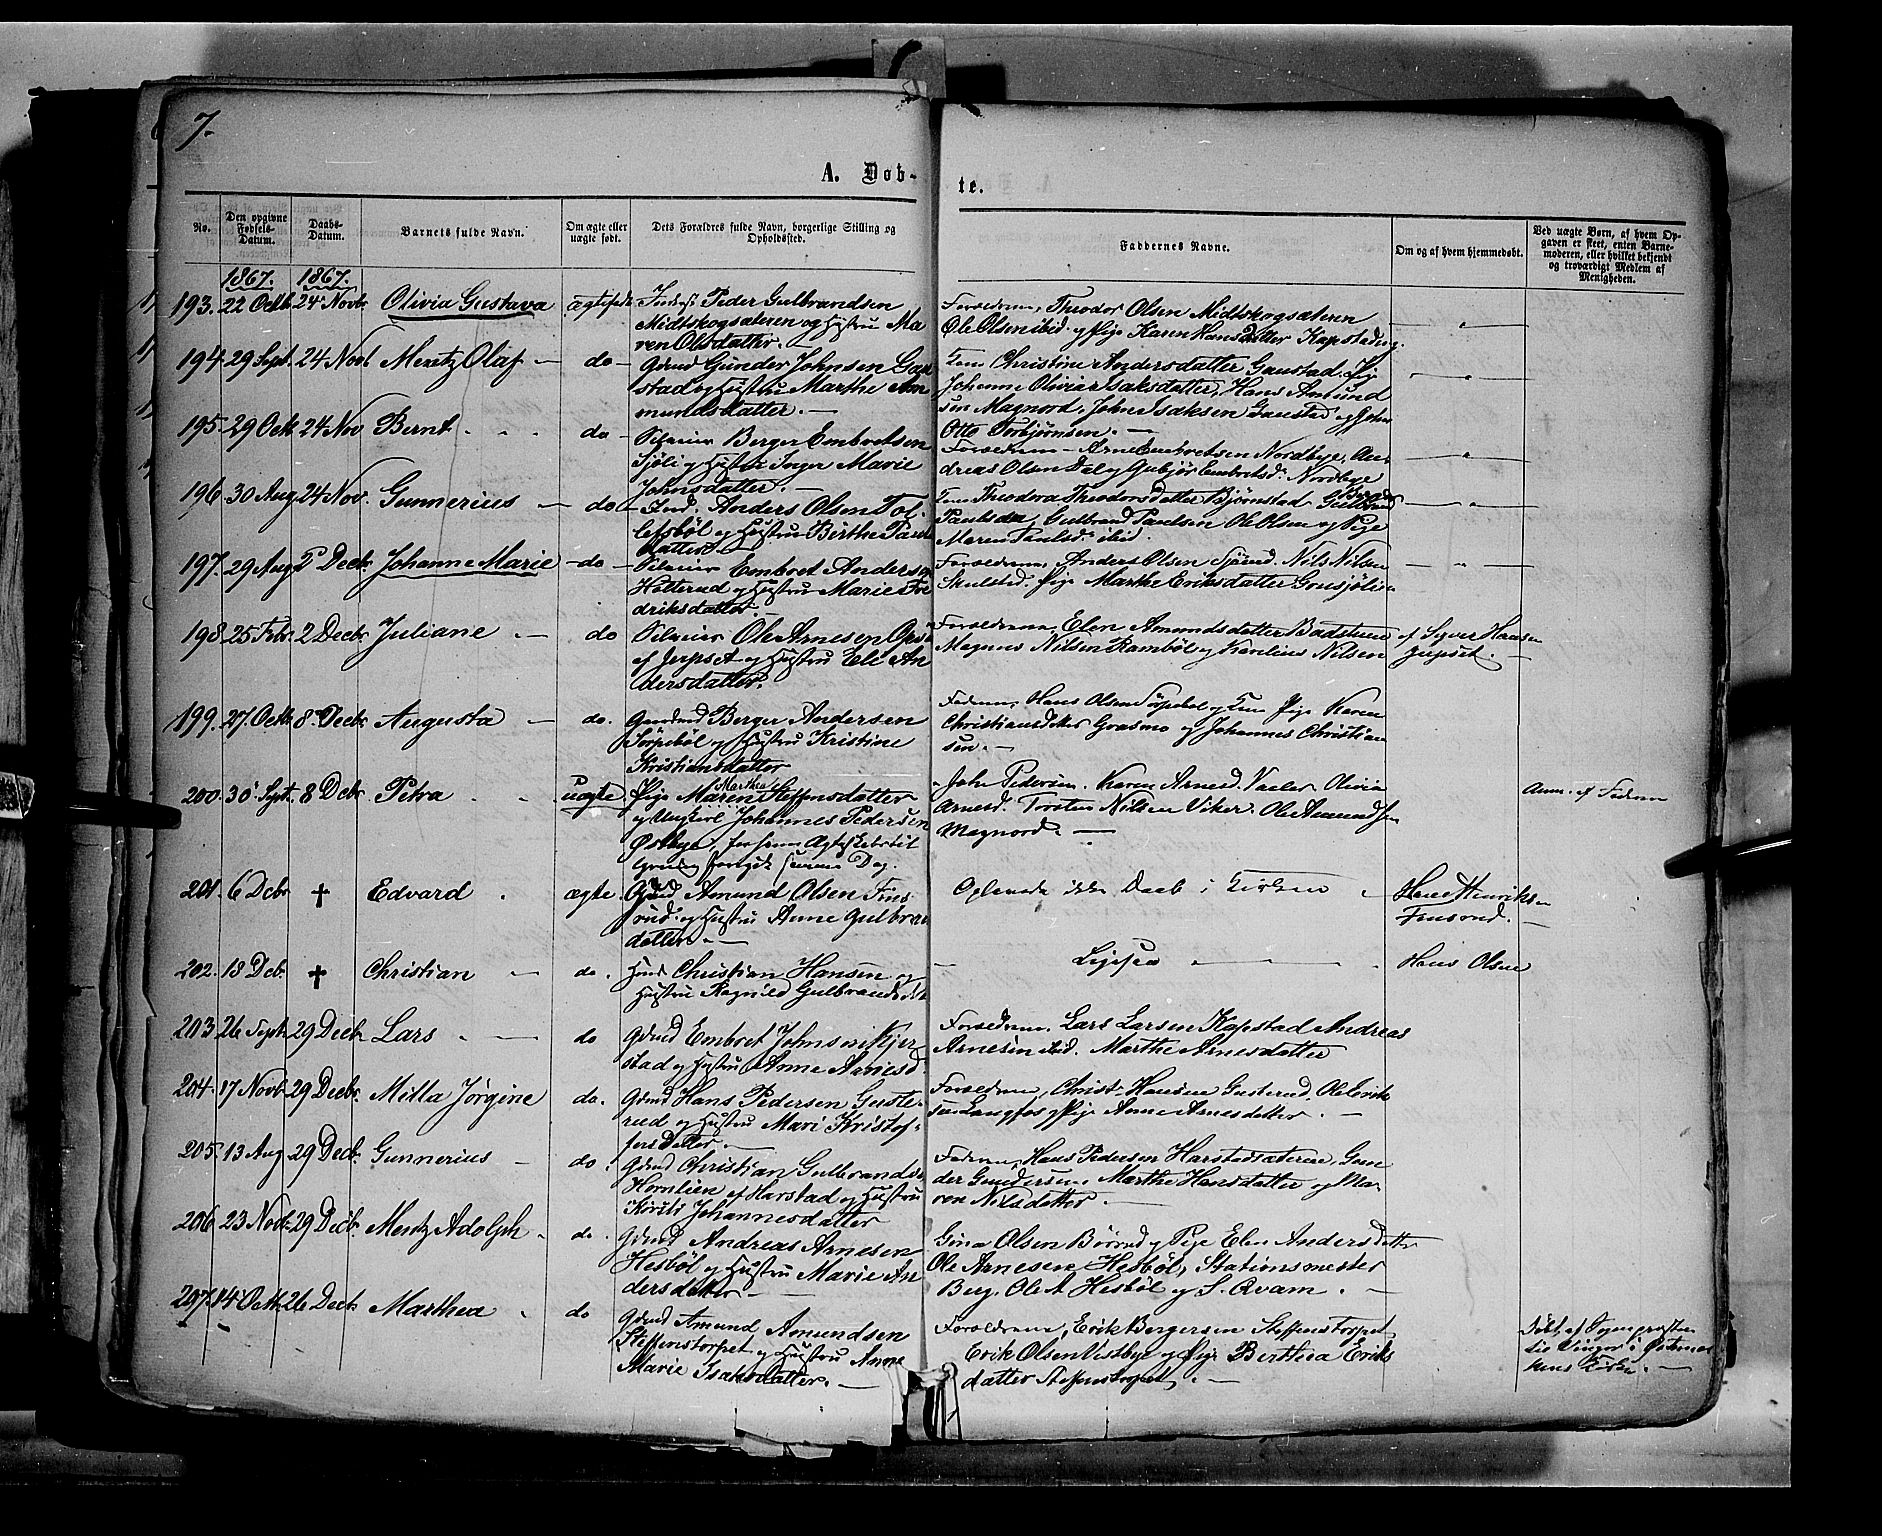 7.
A. Døb-
te.
No.
Den opgivne Fødsels-Datum.
Daabs-Datum.
Barnets fulde Navn.
Om ægte eller uægte født.
Dets Forældres fulde Navn, borgerlige Stilling og Opholdssted.
Faddernes Navne.
Om og af hvem hjemmedøbt.
Ved uægte Børn, af hvem Op-
gaven er skeet, enten Barne-
moderen, eller hvilket bekjendt
og troværdigt Medlem af
Menigheden.
1867. 1867.
193. 22 Octb 24 Novbr Olivia Gustava ægtefødt Peder Gulbrandsen
Midtskogsæteren og Hustru Ma
ren Olsdatter. —
Forældrene, Theodor Olsen Midtskogsæteren
Ole Olsen ibid. og Pige Karen Hansdatter Kapstad
194. 29 Sept. 24 Nov Mentz Olaf — do — Gbrmd Gunder Johnsen Gau
stad og Hustru Marthe Am
mundsdatter. —
Christine Andersdatter Gaustad. Pig
Johanne Olivia Isaksdatter, Hans Amund
sen Magnord, John Isaksen Gaustad og John
Otto Torbjørnsen. —
195. 29 Octb 24 Nov Bernt do — Berger Embretsen
Sjøli og Hustru Inger Marie
Johnsdatter. —
Forældrene — Arne Embretsen Nordbye, An
dreas Olsen Dal og Gubjør Embretsd. Nordbye
196. 30 Aug 24 Nov. Gunnerius — do — Anders Olsen Tol
lefsbøl og Hustru Birthe Pauls
datter —
Theodora Theodorsdatter Bjørnstad Gulbrand
Gulbrand Paulsen Ole Olsen og Pige
Maren Paulsd. ibid.
197. 29 Aug 2 Decb Johanne Marie — do — Embret Andersen
Hotterud og Hustru Marie Fre
driksdatter. —
Forældrene, Anders Olsen Nils Nilsen
Skulstad. Pige Marthe Eriksdatter Gransjølien
198. 25 Febr. 2 Decbr Juliane — do Ole Arnesen
af Jerpset og Hustru Eli An
dersdatter.
Forældrene, Elen Amundsdatter Badstuen
Magnus Nilsen Rambøl og Karelius Nilsen
af Syver Hansen
Jerpset. —
199. 27. Octb. 8. Decb. Augusta — do. Gaardmd Berger Andersen
Sørpebøl og Hustru Kristine
Kristiansdatter
Faderen, Hans Olsen Sørpebøl og Pige Karen
Christiansdatter Grasmo og Johannes Christian
sen. —
200. 30 Sept. 8 Decb. Petra uægte Pige Maren Marthea Steffensdatter
og Ungkarl Johannes Pedersen
Østbye,
Dag.
John Pedersen. Karen Arnesd. Vaaler Olivia
Arnesd. Torsten Nilsen Viker. Ole Amundsen
Magnord. —
Anm. af Faderen
201. 6 Decbr † Edvard ægte. Gbrmd Amund Olsen Fins
rud og Hustru Anne Gulbrands
datter. —
ikke Daab i Kirken
Hans Henriksen
Finsrud. —
202. 18 Decbr. † Christian — do. Christian Hansen og
Hustru Ragnild Gulbrandsdtr
Ligesaa
Hans Olsen
203. 26 Septb 29 Decb. Lars — do Gbrmd Embret Johnsen Kjer
stad og Hustru Anne Arnesd.
Forældrene. Lars Larsen Kapstad Andreas
Arnesen ibid. Marthe Arnesdatter
204. 17 Novb. 29 Decbr. Milla Jørgine do. Gbrmd Hans Pedersen Guste-
rud og Hustru Mari Kristof-
fersdatter. —
Forældrene, Christ. Hansen Gusterud, Ole Erik
sen Langfos og Pige Anne Arnesdatter. —
205. 13 Aug. 29 Decb. Gunnerius — do. Gbrmd Christian Gulbrandsen
Hornlien af Harstad og Hustru
Kirsti Johannesdatter
Faderen, Hans Pedersen Harstadsæteren, Gun
der Gundersen, Marthe Hansdatter og Ma-
ren Nilsdatter. —
206. 23 Novb. 29 Decbr. Mentz Adolph. do. Gbrmd Andreas Arnesen
Hesbøl og Hustru Marie An
dersdatter —
Gina Olsen Børrud og Pige Elen Andersdatter
Ole Arnesen Hesbøl, Stationsmester
Berg, Ole A Hesbøl og S. Qvam. —
207. 14 Octb. 26 Decb. Marthea do Gbrmd Amund Amundsen
Steffenstorpet og Hustru Anne
Marie Isaksdatter. —
Forældrene, Erik Bergersen Steffenstorpet,
Erik Olsen Vestbye og Pige Berthea Eriks
datter Steffenstorpet. —
Døbt af Sognepræsten
til Vinger i Østmar
kens Kirke. —